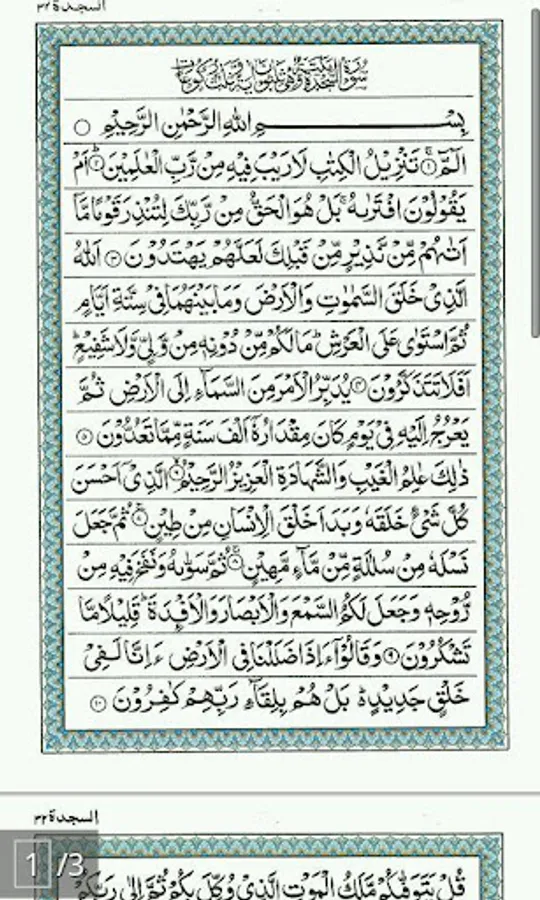 السجدة ٣٢
سورة السجدة مكية وهي ثلثون آية وثلث ركوعات
بِسْمِ اللهِ الرَّحْمٰنِ الرَّحِيْمِ ○
الٓمّٓ ۚ‏﴿۱﴾ تَنْزِيْلُ الْكِتٰبِ لَا رَيْبَ فِيْهِ مِنْ رَّبِّ الْعٰلَمِيْنَ ؕ‏﴿۲﴾ اَمْ
يَقُوْلُوْنَ افْتَرٰىهُ ۚ بَلْ هُوَ الْحَقُّ مِنْ رَّبِّكَ لِتُنْذِرَ قَوْمًا مَّاۤ
اَتٰىهُمْ مِّنْ نَّذِيْرٍ مِّنْ قَبْلِكَ لَعَلَّهُمْ يَهْتَدُوْنَ ﴿۳﴾ اَللهُ
الَّذِيْ خَلَقَ السَّمٰوٰتِ وَالْاَرْضَ وَمَا بَيْنَهُمَا فِيْ سِتَّةِ اَيَّامٍ
ثُمَّ اسْتَوٰى عَلَى الْعَرْشِ ؕ مَا لَكُمْ مِّنْ دُوْنِهٖ مِنْ وَّلِيٍّ وَّلَا شَفِيْعٍ ؕ
اَفَلَا تَتَذَكَّرُوْنَ ﴿۴﴾ يُدَبِّرُ الْاَمْرَ مِنَ السَّمَآءِ اِلَى الْاَرْضِ ثُمَّ
يَعْرُجُ اِلَيْهِ فِيْ يَوْمٍ كَانَ مِقْدَارُهٗۤ اَلْفَ سَنَةٍ مِّمَّا تَعُدُّوْنَ ﴿۵﴾
ذٰلِكَ عٰلِمُ الْغَيْبِ وَالشَّهَادَةِ الْعَزِيْزُ الرَّحِيْمُ ۙ‏﴿۶﴾ الَّذِيْۤ اَحْسَنَ
كُلَّ شَيْءٍ خَلَقَهٗ وَبَدَاَ خَلْقَ الْاِنْسَانِ مِنْ طِيْنٍ ۚ‏﴿۷﴾ ثُمَّ جَعَلَ
نَسْلَهٗ مِنْ سُلٰلَةٍ مِّنْ مَّآءٍ مَّهِيْنٍ ۚ‏﴿۸﴾ ثُمَّ سَوّٰىهُ وَنَفَخَ فِيْهِ مِنْ
رُّوْحِهٖ وَجَعَلَ لَكُمُ السَّمْعَ وَالْاَبْصَارَ وَالْاَفْـِٕدَةَ ؕ قَلِيْلًا مَّا
تَشْكُرُوْنَ ﴿۹﴾ وَقَالُوْۤا ءَاِذَا ضَلَلْنَا فِي الْاَرْضِ ءَاِنَّا لَفِيْ
خَلْقٍ جَدِيْدٍ ۬ؕ بَلْ هُمْ بِلِقَآءِ رَبِّهِمْ كٰفِرُوْنَ ﴿۱۰﴾
السجدة ٣٢
1 /3
قُلْ يَتَوَفّٰىكُمْ مَّلَكُ الْمَوْتِ الَّذِيْ وُكِّلَ بِكُمْ ثُمَّ اِلٰى رَبِّكُمْ